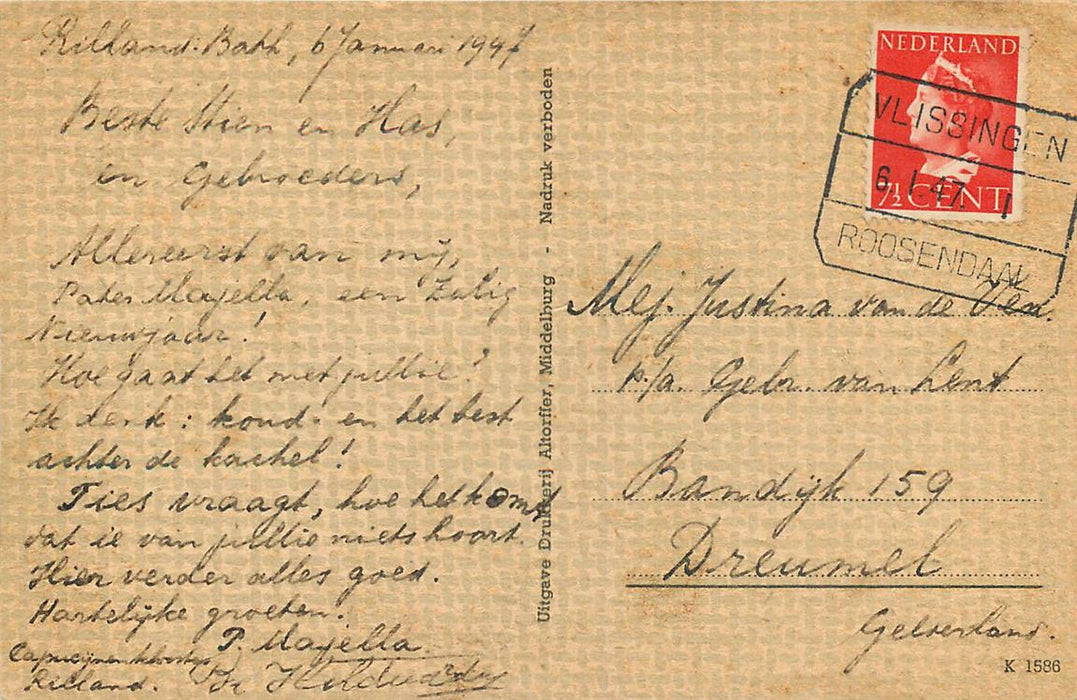 Rilland-Bath, 6 Januari 1947
Beste Stien en Has,
en Gebroeders,
Allereerst van mij,
Pater Majella, een Zalig
Nieuwjaar!
Hoe gaat het met jullie?
Ik denk: koud. en het best
achter de kachel!
Ties vraagt, hoe het komt
dat ie van jullie niets hoort.
Hier verder alles goed.
Hartelijke groeten.
P. Majella
Capucijnenklooster
Rilland.
Uitgave Drukkerij Altorffer, Middelburg - Nadruk verboden
NEDERLAND
7½ CENT
VLISSINGEN
6.1.47. I
ROOSENDAAL
Mej. Justina van de Ven.
p/a. Gebr. van Lent
Bandijk 159
Dreumel
Gelderland.
K 1586